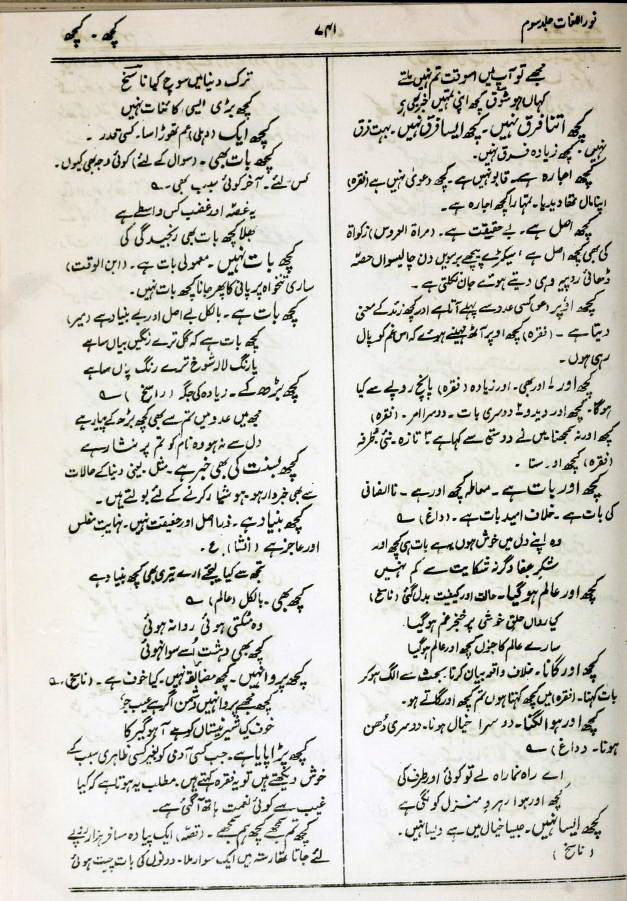 نور اللغات جلد سوم
۷۴۱
کچھ - کچھ
مجھے تو آپ میں اسوقت تم نہیں ملتے
کہاں ہو شوق کچھ اپنی تمہیں خبر بھی ہے
کچھ اتنا فرق نہیں - کچھ ایسا فرق نہیں - بہت فرق
نہیں - کچھ زیادہ فرق نہیں -
کچھ اجارہ ہے - قابو نہیں ہے - کچھ دعویٰ نہیں ہے (فقرہ)
اپنا مال تھا دیدیا - تمہارا کچھ اجارہ ہے -
کچھ اصل ہے - بے حقیقت ہے - (مراۃ العروس) زکوٰۃ
کی بھی کچھ اصل ہے سیکڑے پیچھے برسویں دن چالیسواں حصہ
ڈھائی روپیہ وہی دیتے ہوئے جان نکلتی ہے -
کچھ اوپر (عو) کسی عدد سے پہلے آتا ہے اور کچھ زائد کے معنی
دیتا ہے - (فقرہ) کچھ اوپر آٹھ مہینے ہوئے کہ اس غم کو پال
رہی ہوں -
کچھ اور ۱ اور بھی - اور زیادہ (فقرہ) پانچ روپے سے کیا
ہوگا - کچھ اور دیدو ۲ دوسری بات - دوسرا امر - (فقرہ)
کچھ اور نہ سمجھنا میں نے دوستی سے کہا ہے ۳ تازہ - نئی
(فقرہ) کچھ اور سنا -
کچھ اور بات ہے - معاملہ کچھ اور ہے - ناانصافی
کی بات ہے - خلاف امید بات ہے - (داغ) ؎
وہ اپنے دل میں خوش ہوں ہے بات ہی کچھ اور
شکر جفا وگرنہ شکایت سے کم نہیں
کچھ اور عالم ہو گیا - حالت اور کیفیت بدل گئی (ناسخ)
کیا رواں حلق خوشی پر خنجر غم ہو گیا
سارے عالم کا جنوں کچھ اور عالم ہو گیا
کچھ اور گانا - خلاف واقعہ بیان کرنا - بحث سے الگ ہو کر
بات کہنا - (فقرہ) میں کچھ کہتا ہوں تم کچھ اور گاتے ہو -
کچھ اور ہوا لگنا - دوسرا خیال ہونا - دوسری دُھن
ہونا - (داغ) ؎
اے راہ نما راہ لے تو کوئی اور طرف کی
کچھ اور ہوا رہرو منزل کو لگی ہے
کچھ ایسا نہیں - جیسا خیال میں ہے ویسا نہیں -
(ناسخ)
ترک دنیا میں سوچ کیا ناسخ
کچھ بڑی ایسی کائنات نہیں
کچھ ایک (دہلی) عم تھوڑا سا - کسی قدر -
کچھ بات بھی - (سوال کے لئے) کوئی وجہ بھی کیوں -
کس لئے - آخر کوئی سبب بھی - ؎
یہ غصہ اور غضب کس واسطے ہے
بھلا کچھ بات بھی رنجیدگی کی
کچھ بات نہیں - معمولی بات ہے - (ابن الوقت)
ساری تنخواہ پر پانی کا پھر جانا کچھ بات نہیں -
کچھ بات ہے - بالکل بے اصل اور بے بنیاد ہے (میر)
کچھ بات ہے کہ گل ترے رنگیں بیاں سا ہے
یا رنگ لالہ شوخ ترے رنگ پاں سا ہے
کچھ بڑھ کے - زیادہ کی جگہ (راسخ) ؎
مجھ میں عدو میں تم سے بھی کچھ بڑھ کے پیار ہے
دل سے نہ ہو وہ نام کو تم پر نثار ہے
کچھ بسنت کی بھی خبر ہے - مثل - یعنی دنیا کے حالات
سے بھی خبردار ہو - ہوشیار کرنے کے لئے بولتے ہیں -
کچھ بنیاد ہے - ذرا اصل اور حقیقت نہیں - نہایت مفلس
اور عاجز ہے (انشا) ع -
تجھ سے کیا لیجئے ارے تیری بھی کچھ بنیاد ہے
کچھ بھی - بالکل (عالم) ؎
وہ ہنستی ہوئی روانہ ہوئی
کچھ بھی دہشت اُسے سوا نہ ہوئی
کچھ پروا نہیں - کچھ مضائقہ نہیں - کیا خوف ہے - (ناسخ) ؎
کچھ مجھے پروا نہیں دشمن اگر ہے عیب جو
خوف کیا شیر نیستاں کو ہے آہو گیر کا
کچھ پڑا پایا ہے - جب کسی آدمی کو بغیر کسی ظاہری سبب کے
خوش دیکھتے ہیں تو یہ فقرہ کہتے ہیں - مطلب یہ ہوتا ہے کہ کیا
غیب سے کوئی نعمت ہاتھ آگئی ہے -
کچھ تم سمجھے کچھ ہم سمجھے - (قصہ) ایک پیادہ مسافر ہزار روپے
لئے جاتا تھا رستہ میں ایک سوار ملا - دونوں کی بات چیت ہوئی